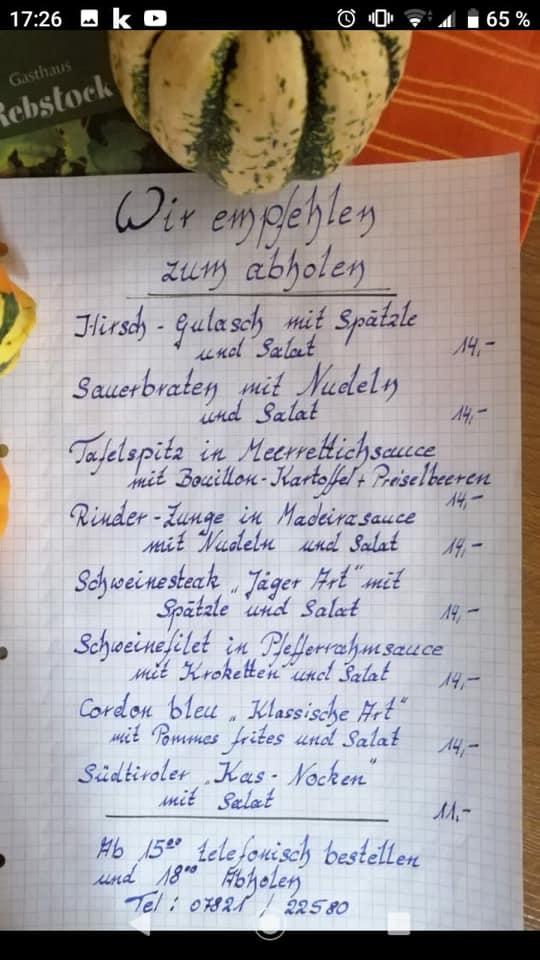 17:26
65 %
Gasthaus
Rebstock
Wir empfehlen
zum abholen
Hirsch - Gulasch mit Spätzle
und Salat 14,-
Sauerbraten mit Nudeln
und Salat 14,-
Tafelspitz in Meerrettichsauce
mit Bouillon-Kartoffel + Preiselbeeren
14,-
Rinder-Zunge in Madeirasauce
mit Nudeln und Salat 14,-
Schweinesteak „Jäger Art" mit
Spätzle und Salat 14,-
Schweinefilet in Pfefferrahmsauce
mit Kroketten und Salat 14,-
Cordon bleu „Klassische Art"
mit Pommes frites und Salat 14,-
Südtiroler „Kas - Nocken"
mit Salat 11,-
Ab 15⁰⁰ telefonisch bestellen
und 18⁰⁰ Abholen
Tel : 07821 / 22580